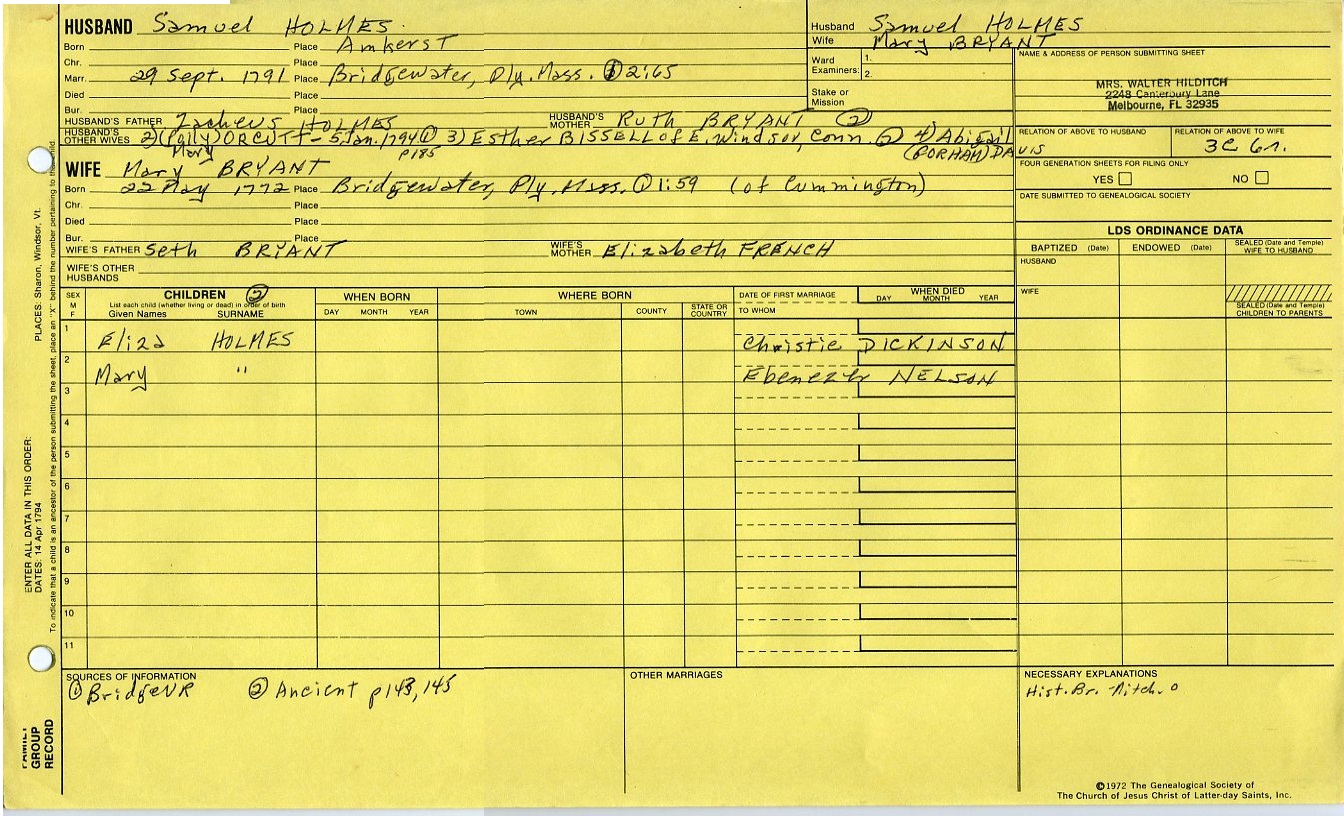 HUSBAND Samuel HOLMES
Born Place Amherst
Chr. Place
Marr. 29 Sept. 1791 Place Bridgewater, Ply. Mass. ① 2:65
Died Place
Bur. Place
HUSBAND'S FATHER Zacheus HOLMES HUSBAND'S MOTHER Ruth BRYANT ②
HUSBAND'S OTHER WIVES 2) (Polly) ORCUTT - 5 Jan. 1794 ① 3) Esther BISSELL of E. Windsor, Conn. ② 4) Abigail
Mary p185 (GORHAM) DAVIS
WIFE Mary BRYANT
Born 22 May 1772 Place Bridgewater, Ply. Mass. ① 1:59 (of Cummington)
Chr. Place
Died Place
Bur. Place
WIFE'S FATHER Seth BRYANT WIFE'S MOTHER Elizabeth FRENCH
WIFE'S OTHER HUSBANDS
Husband Samuel HOLMES
Wife Mary BRYANT
Ward Examiners: 1.
2.
Stake or Mission
NAME & ADDRESS OF PERSON SUBMITTING SHEET
MRS. WALTER HILDITCH
2248 Canterbury Lane
Melbourne, FL 32935
RELATION OF ABOVE TO HUSBAND RELATION OF ABOVE TO WIFE
3C 6r.
FOUR GENERATION SHEETS FOR FILING ONLY
YES NO
DATE SUBMITTED TO GENEALOGICAL SOCIETY
LDS ORDINANCE DATA
BAPTIZED (Date) ENDOWED (Date) SEALED (Date and Temple) WIFE TO HUSBAND
HUSBAND
WIFE
SEALED (Date and Temple) CHILDREN TO PARENTS
SEX M F
CHILDREN ②
List each child (whether living or dead) in order of birth
Given Names SURNAME
WHEN BORN
DAY MONTH YEAR
WHERE BORN
TOWN COUNTY STATE OR COUNTRY
DATE OF FIRST MARRIAGE
TO WHOM
WHEN DIED
DAY MONTH YEAR
1 Eliza HOLMES Christie DICKINSON
2 Mary " Ebenezer NELSON
3
4
5
6
7
8
9
10
11
SOURCES OF INFORMATION
① Bridge VR ② Ancient p143, 145
OTHER MARRIAGES
NECESSARY EXPLANATIONS
Hist. Br. Mitch.
©1972 The Genealogical Society of
The Church of Jesus Christ of Latter-day Saints, Inc.
PLACES: Sharon, Windsor, Vt.
To indicate that a child is an ancestor of the person submitting the sheet, place an "X" behind the number pertaining to that child.
ENTER ALL DATA IN THIS ORDER:
DATES: 14 Apr 1794
FAMILY
GROUP
RECORD